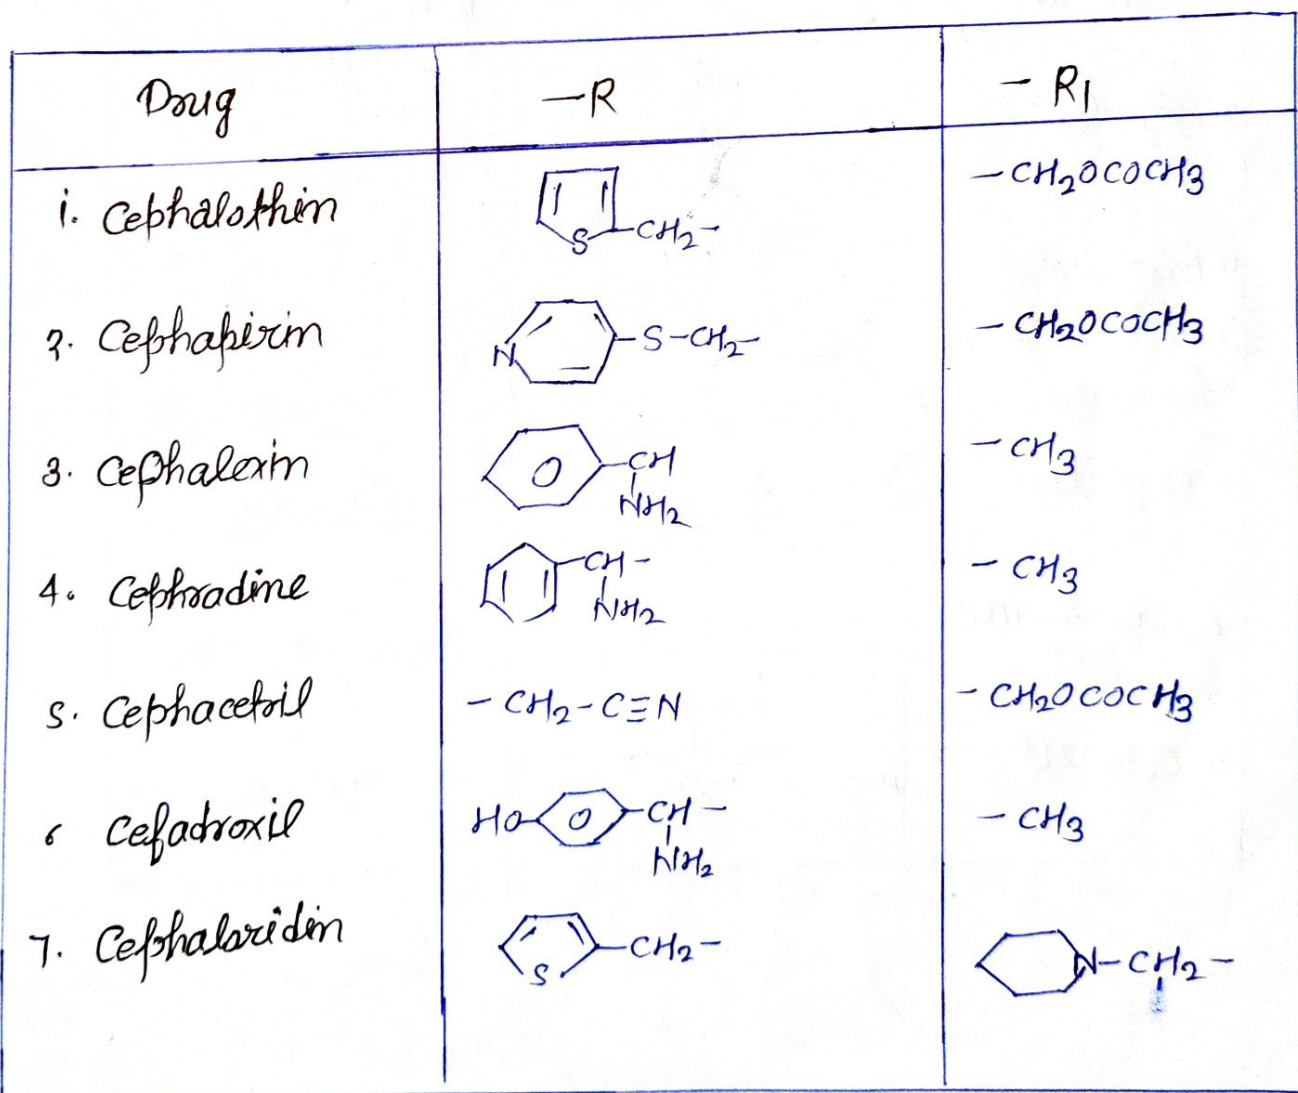 Drug –R – R1
1. Cephalothin S –CH2– –CH2OCOCH3
2. Cephapirin N –S–CH2– –CH2OCOCH3
3. Cephalexin –CH –CH3
NH2
4. Cephradine –CH– –CH3
NH2
5. Cephacetril –CH2–C≡N –CH2OCOCH3
6 Cefadroxil HO– –CH– –CH3
NH2
7. Cephaloridin S –CH2– N–CH2–